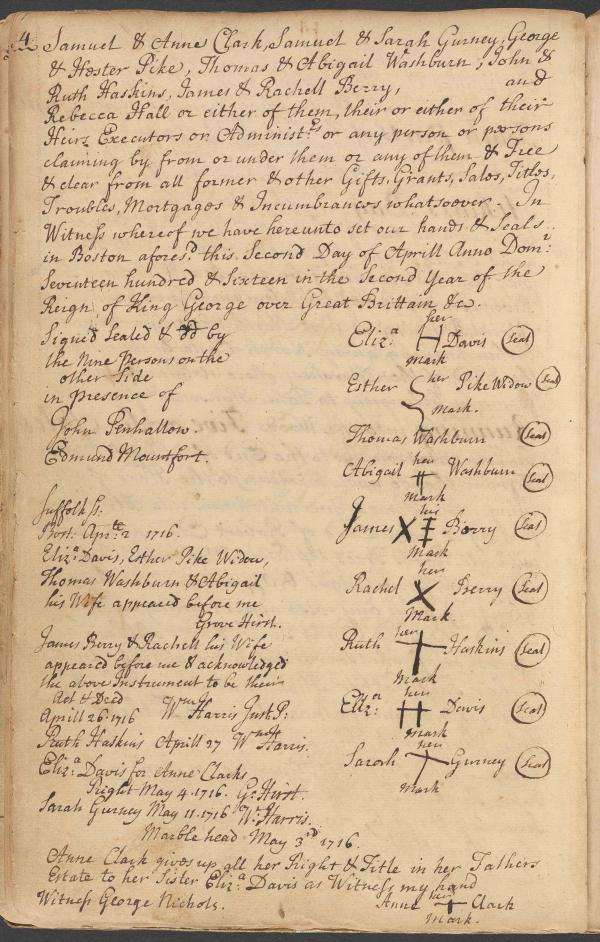 4. Samuel & Anne Clark, Samuel & Sarah Gurney, George
& Hester Pike, Thomas & Abigail Washburn, John &
Ruth Haskins, James & Rachell Berry, and
Rebecca Hall or either of them, their or either of their
Heirs Executors or Administ.rs or any person or persons
claiming by from or under them or any of them & Free
& clear from all former & other Gifts, Grants, Sales, Titles,
Troubles, Mortgages & Incumbrances whatsoever. In
Witness whereof we have hereunto set our hands & Seals
in Boston afores.d this Second Day of Aprill Anno Dom.i
Seventeen hundred & Sixteen in the Second Year of the
Reign of King George over Great Brittain &c.
Signed Sealed & dd by
the Nine Persons on the
other Side
in presence of
John Penhallow.
Edmund Mountfort.
Suffolk ss:
Bost: Apr. 2 1716.
Eliz.a Davis, Esther Pike Widow,
Thomas Washburn & Abigail
his Wife appeared before me
Grove Hirst.
James Berry & Rachell his Wife
appeared before me & acknowledged
the above Instrument to be their
Act & Deed
Aprill 26. 1716 W.m Harris Just P:
Ruth Haskins Aprill 27 W.m Harris.
Eliz.a Davis for Anne Clarks
Right May 4. 1716. G: Hirst.
Sarah Gurney May 11. 1716 W. Harris.
Eliz.a her mark Davis Seal
Esther her mark. Pike Widow Seal
Thomas Washburn Seal
Abigail her mark Washburn Seal
James his Mark Berry Seal
Rachel her Mark. Berry Seal
Ruth her Mark Haskins Seal
Eliz.a her mark Davis Seal
Sarah her mark Gurney Seal
Marblehead May 3.rd 1716.
Anne Clark gives up all her Right & Title in her Fathers
Estate to her Sister Eliz.a Davis as Witness my hand
Witness George Nichols. Anne her mark. Clark